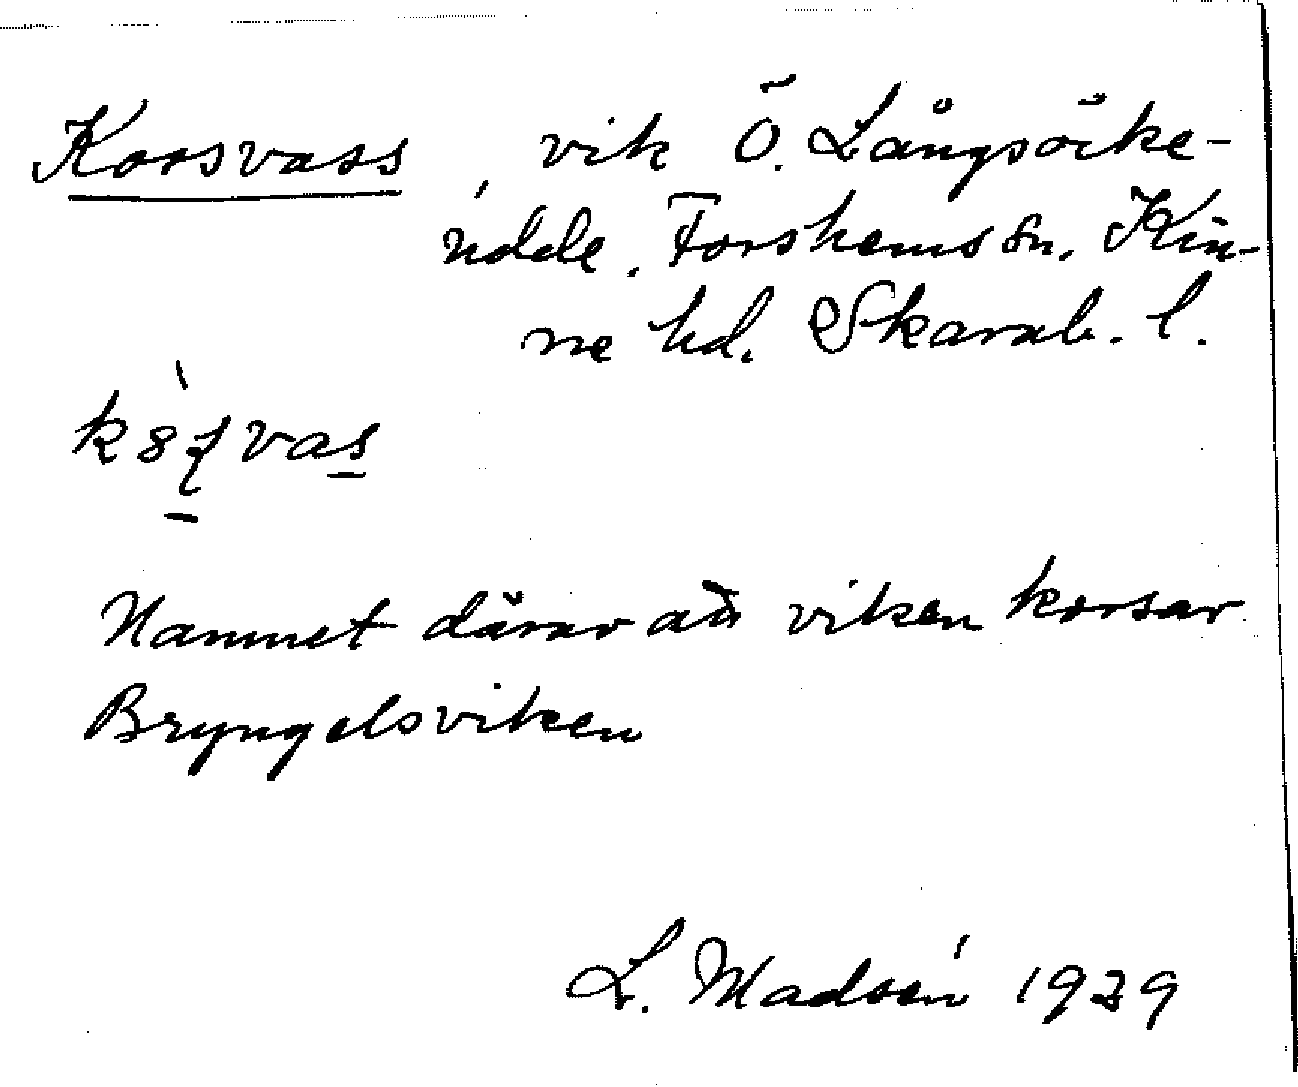 Korsvass, vik Ö. Långsöke-
udde. Forshems sn. Kin-
ne hd. Skarab. l.
Namnet därav att viken korsar
Bryngelsviken
L. Madsén 1939